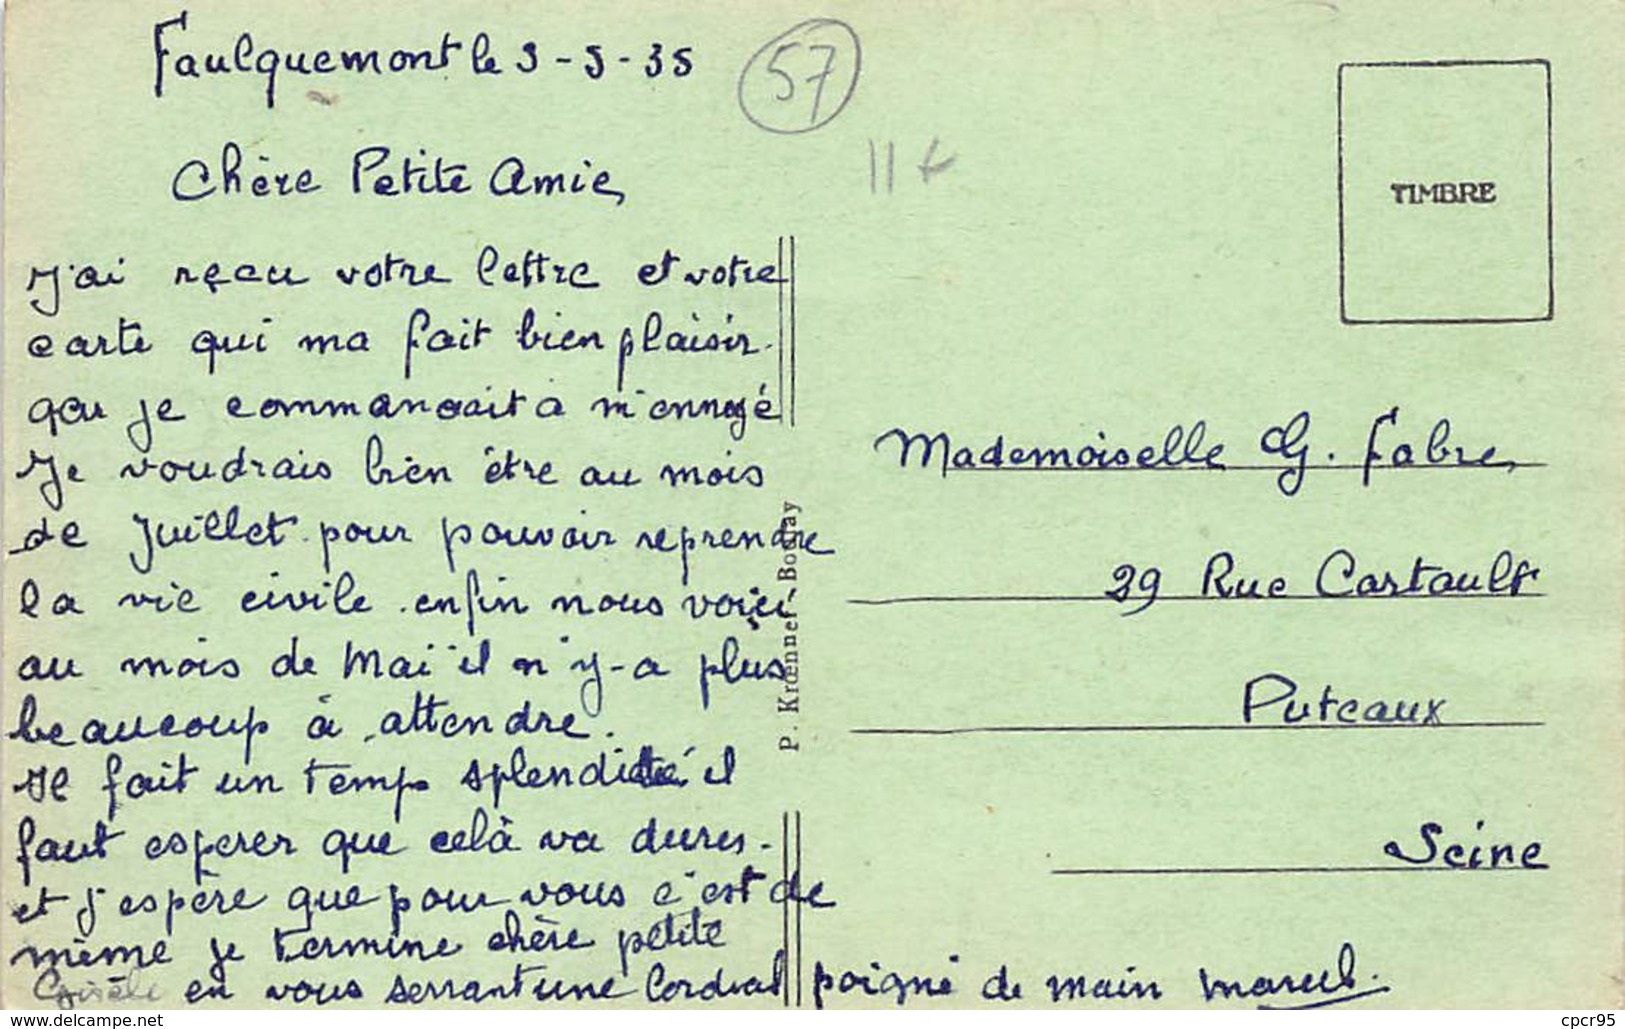 Faulquemont le 3-5-35
57
11 +
Chère Petite Amie,
J'ai reçeu votre lettre et votre
carte qui ma fait bien plaisir.
çar je commançait à m'ennuyé
Je voudrais bien être au mois
de Juillet pour pouvoir reprendre
la vie civile enfin nous voiçi
au mois de Mai il n'y-a plus
beaucoup à attendre.
Il fait un temps splendide il
faut esperer que celà va durer.
et j'espère que pour vous c'est de
même je termine chère petite
Gisèle en vous serrant une Cordial poigné de main Marcel.
TIMBRE
Mademoiselle G. Fabre,
39 Rue Cartault
Puteaux
Seine
P. Krœnner Boulay
www.delcampe.net
cpcr95